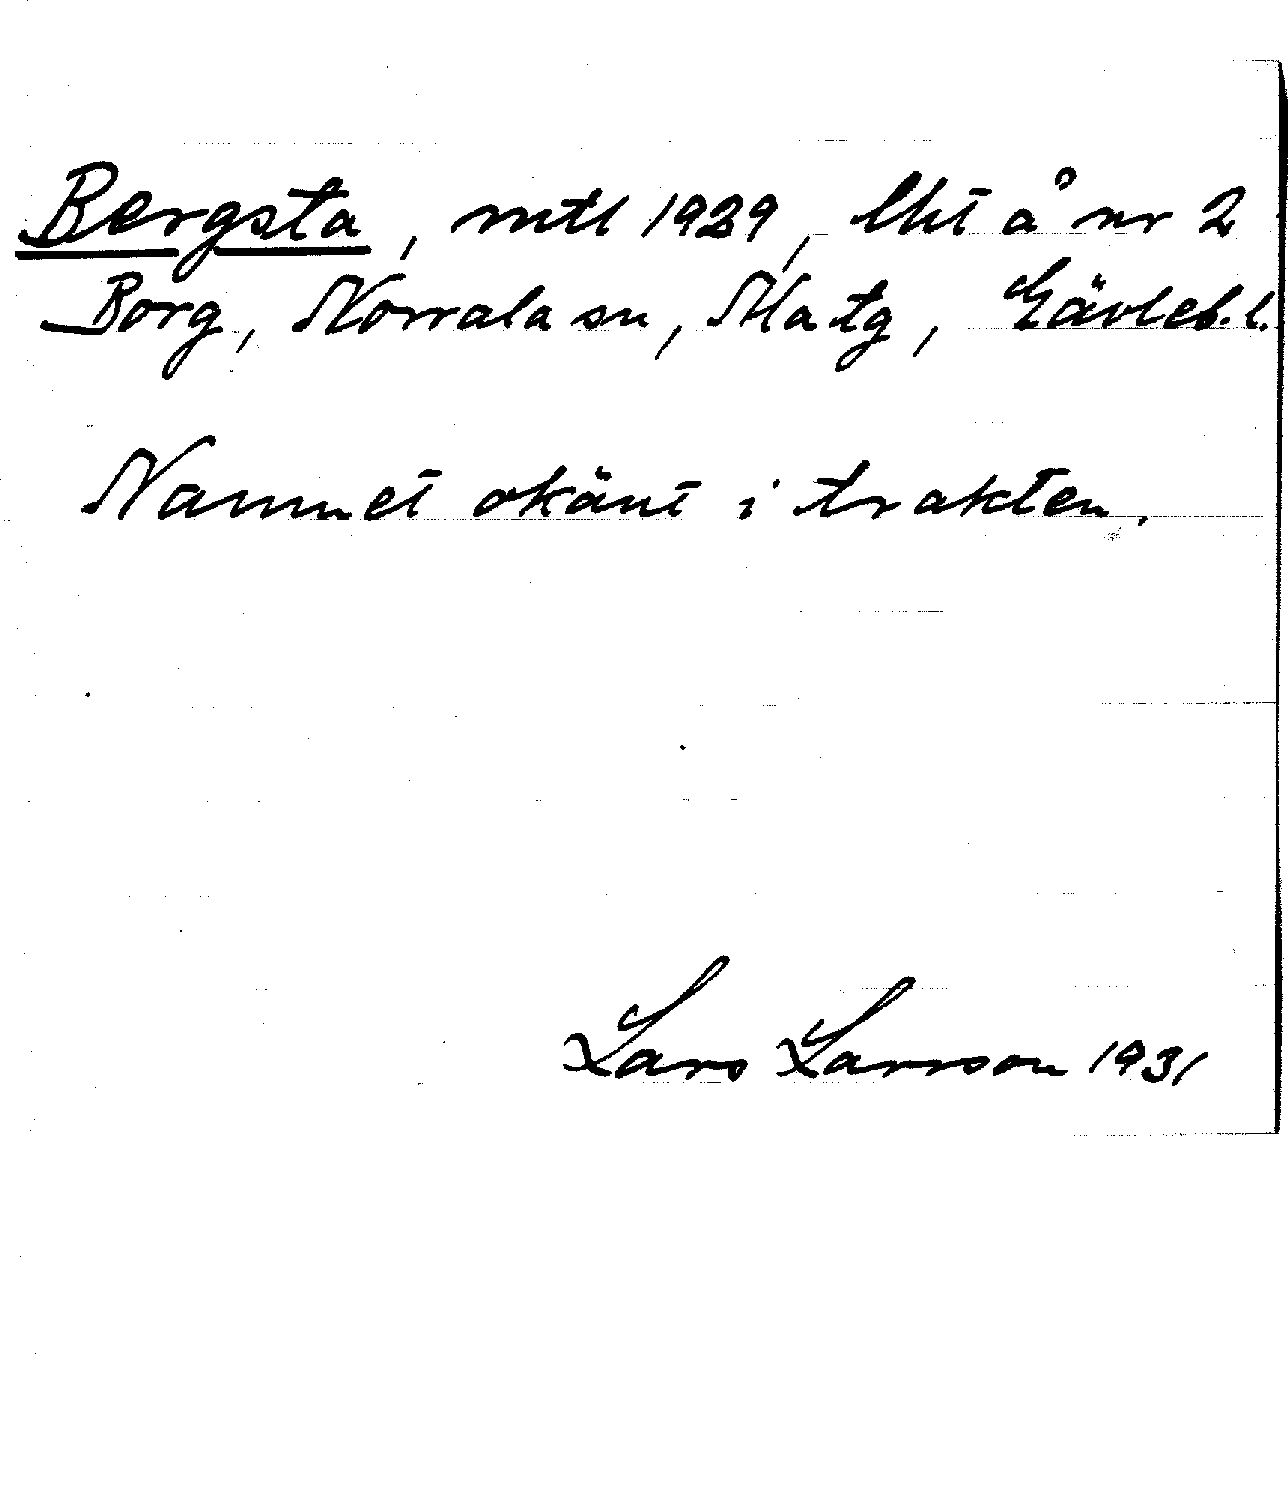 Bergsta, mtl 1929, lht å nr 2
Borg, Norrala sn, Ala tg, Gävleb. l.
Namnet okänt i trakten.
Lars Larsson 1931